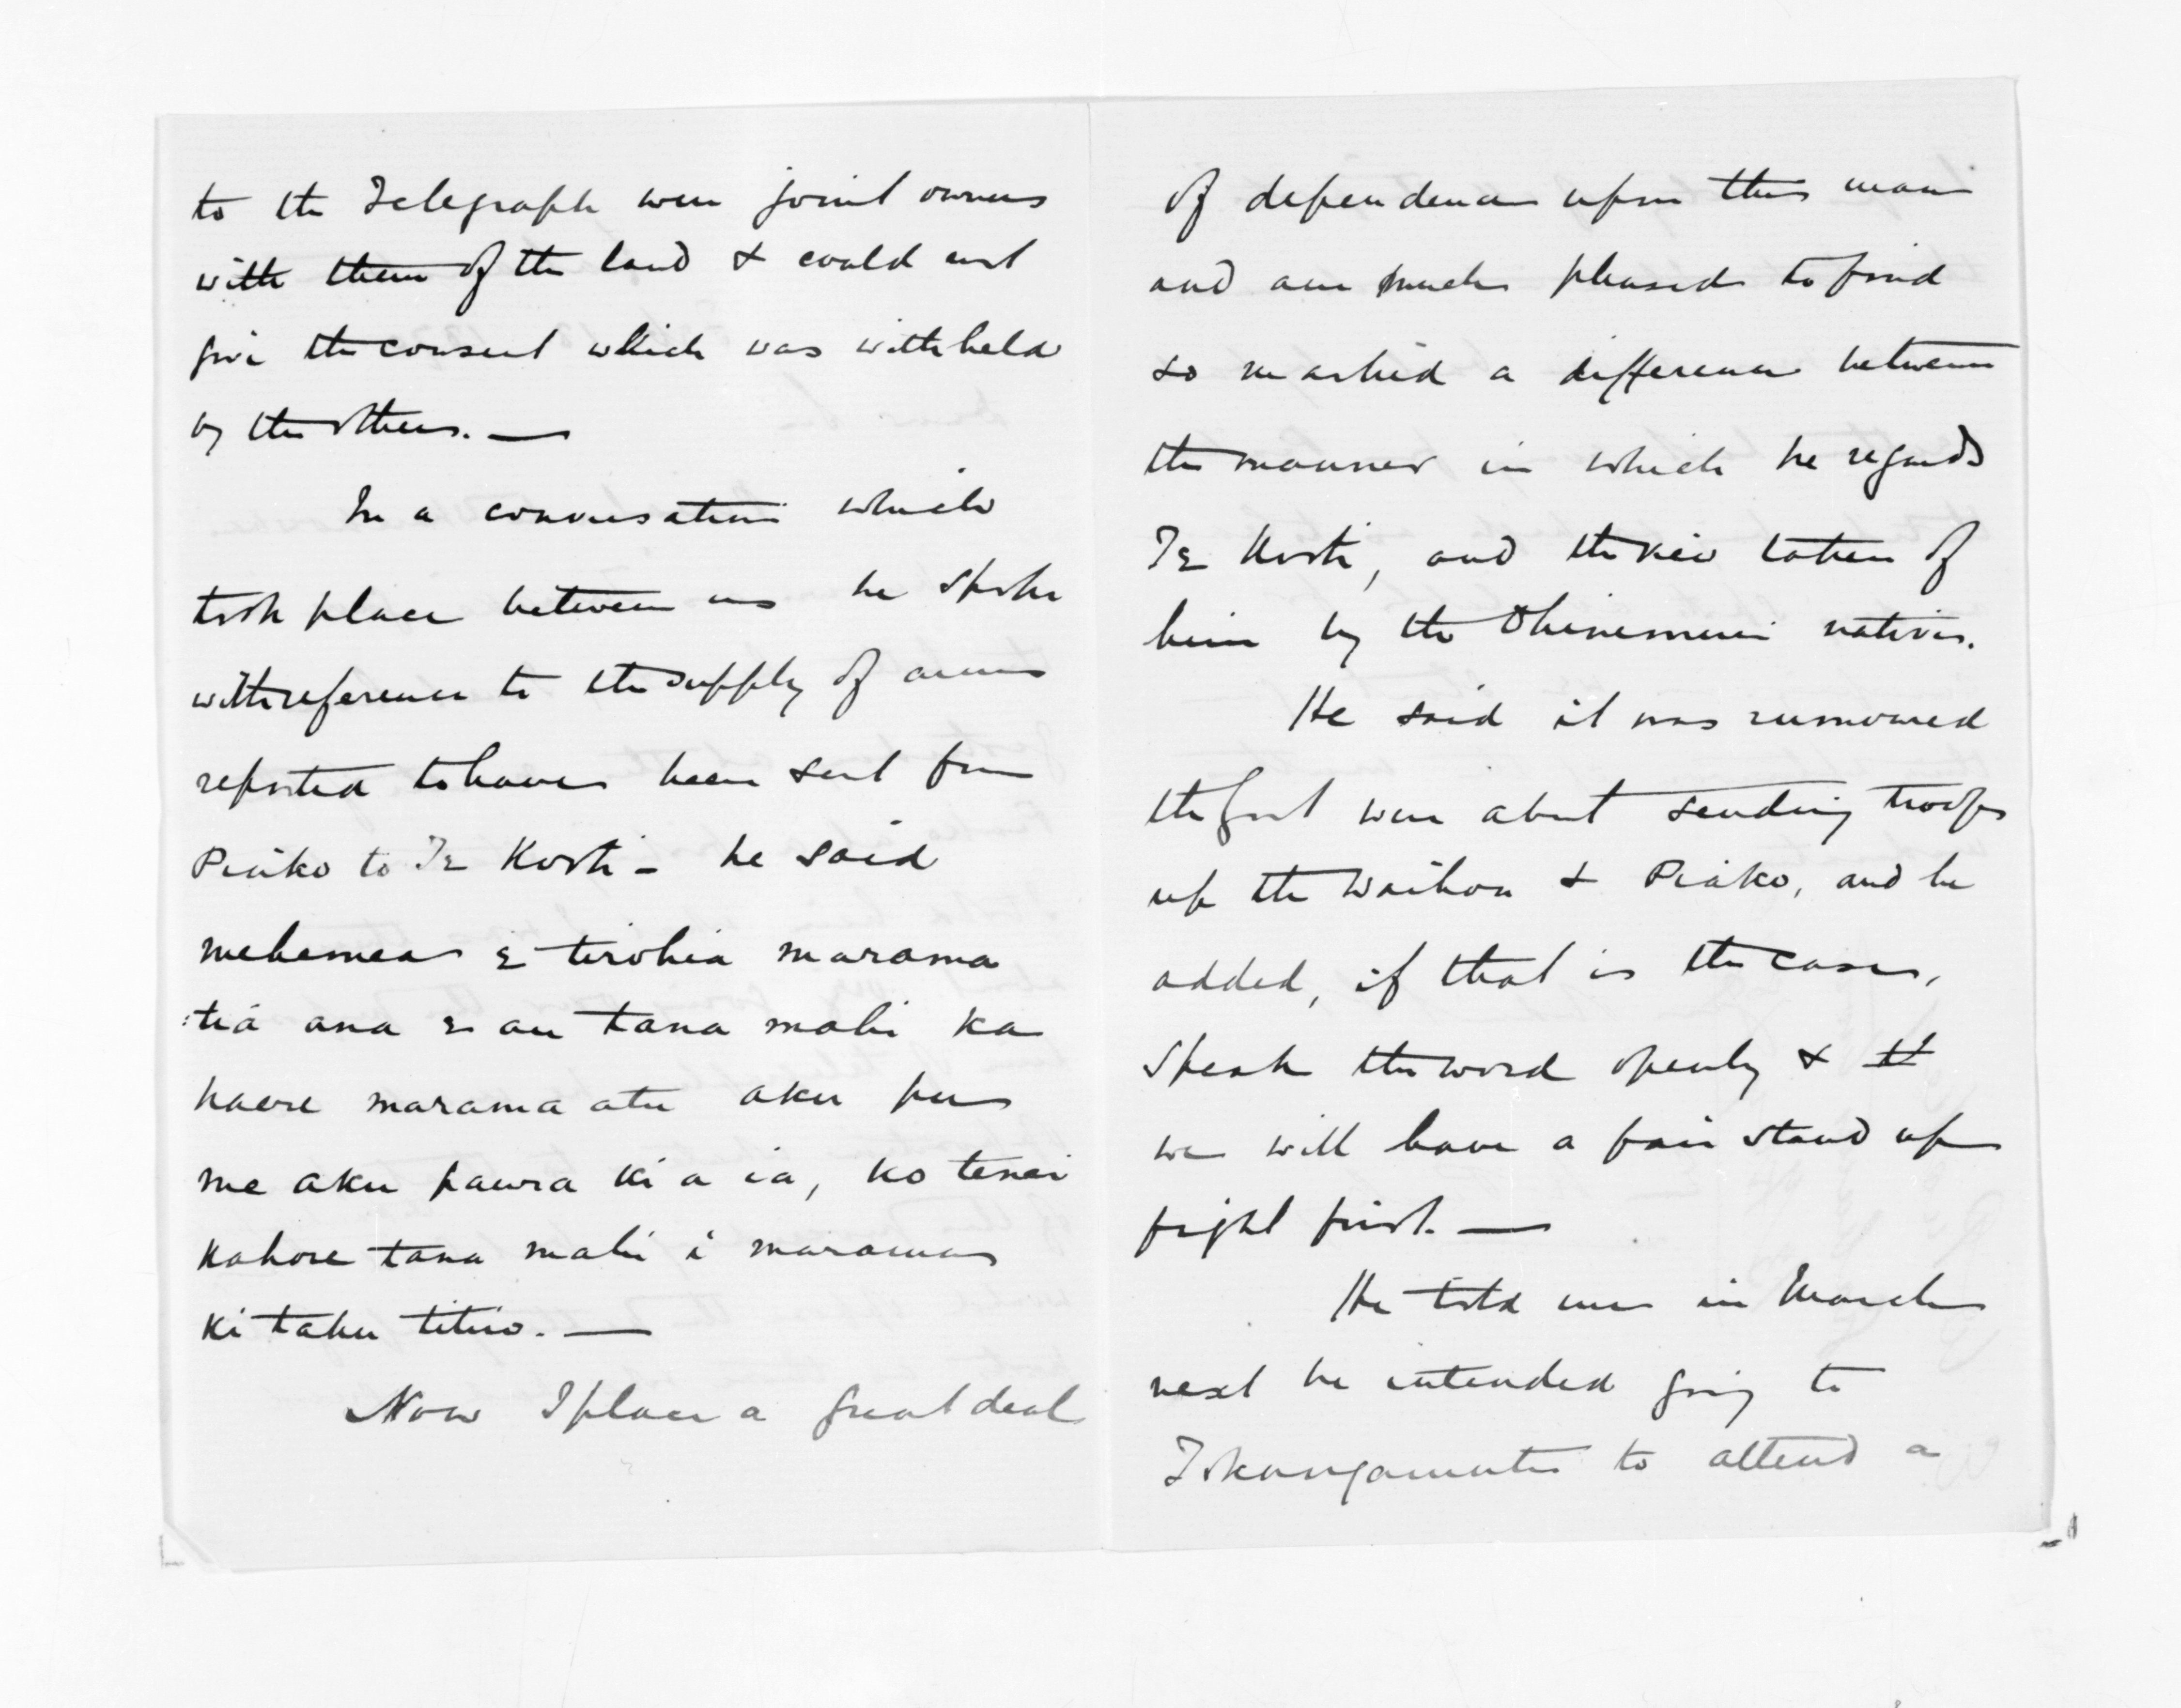 to the Telegraph were joint owners
with them of the land & could not
give the consent which was withheld
by the others. —
In a conversation which
took place between us he spoke
with reference to the supply of arms
reported to have been sent from
Piako to Te Kooti – he said
mehemea e tirohia marama
:tia ana e au tana mahi ka
haere marama atu aku pu
me aku paura ki a ia, ko tenei
kahore tana mahi i marama
ki taku titiro. —
Now I place a great deal
of dependence upon this man
and am much pleased to find
so marked a difference between
the manner in which he regards
Te Kooti, and the view taken of
him by the Ohinemuri natives.
He said it was rumoured
the Govt were about sending troops
up the Waihou & Piako, and he
added, if that is the case,
speak the word openly &
we will have a fair stand up
fight first. —
He told me in March
next he intended going to
Tokangamutu to attend a